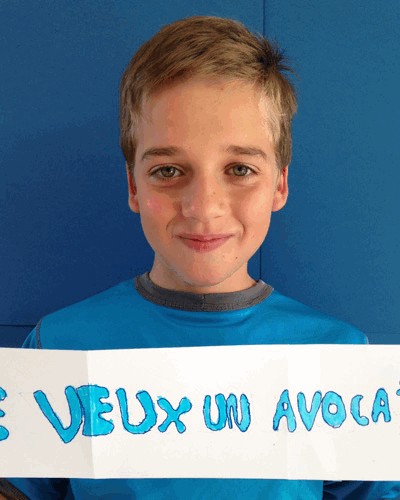 E VEUX UN AVOCA